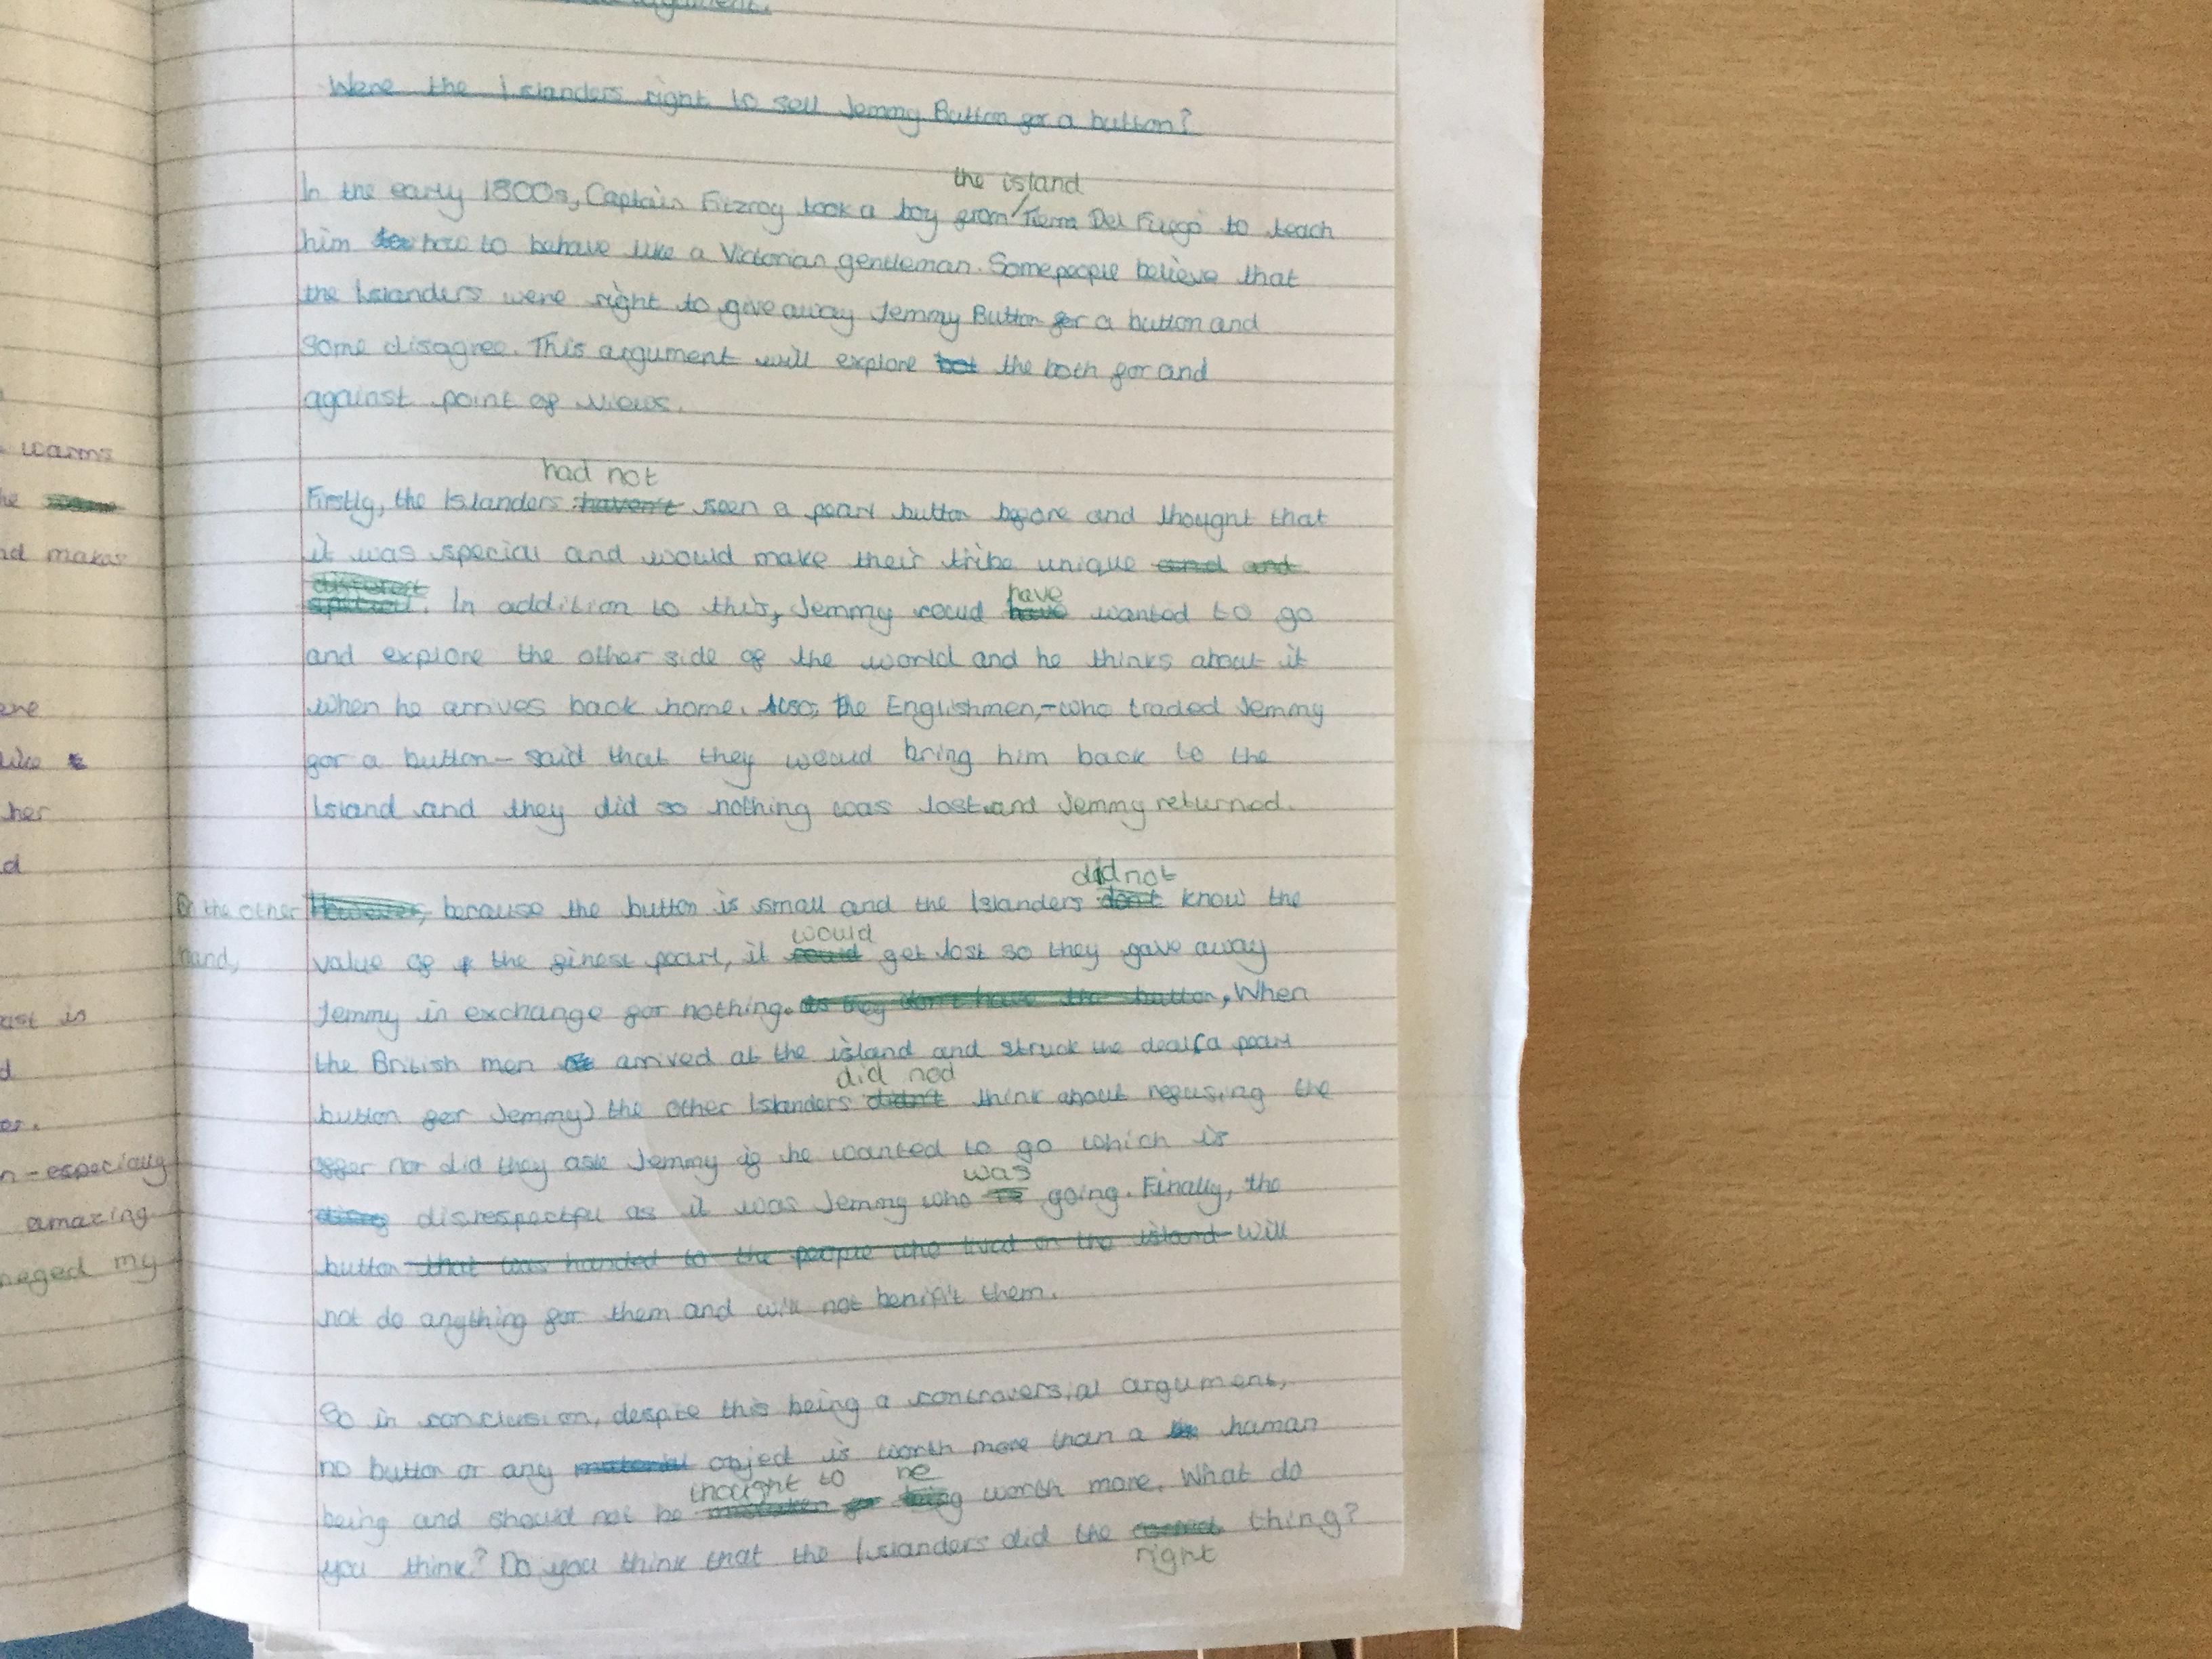 argument.
Were the Islanders right to sell Jemmy Button for a button?
the island
In the early 1800s, Captain Fitzroy took a boy from Tierra Del Fuego to teach
him how to behave like a Victorian gentleman. Some people believe that
the Islanders were right to give away Jemmy Button for a button and
some disagree. This argument will explore bot the both for and
against point of views.
had not
Firstly, the Islanders haven't seen a pearl button before and thought that
it was special and would make their tribe unique and and
different
special. In addition to this, Jemmy could have wanted to go
have
and explore the other side of the world and he thinks about it
when he arrives back home. Also, the Englishmen, - who traded Jemmy
for a button - said that they would bring him back to the
Island and they did so nothing was lost and Jemmy returned.
did not
On the other However, because the button is small and the Islanders don't know the
would
hand, value of the finest pearl, it could get lost so they gave away
Jemmy in exchange for nothing. as they don't have the button, When
the British men arrived at the island and struck the deal (a pearl
did nod
button for Jemmy) the other Islanders didn't think about refusing the
offer nor did they ask Jemmy if he wanted to go which is
was
disrespectful as it was Jemmy who is going. Finally, the
button that was handed to the people who lived on the island will
not do anything for them and will not benifit them.
So in conclusion, despite this being a contraversial argument,
no button or any material object is worth more than a human
thought to be
being and should not be mistaken for being worth more. What do
you think? Do you think that the Islanders did the correct thing?
right
warms
he
nd makes
ere
like
her
d
ast is
d
er.
n - especially
amazing
neged my